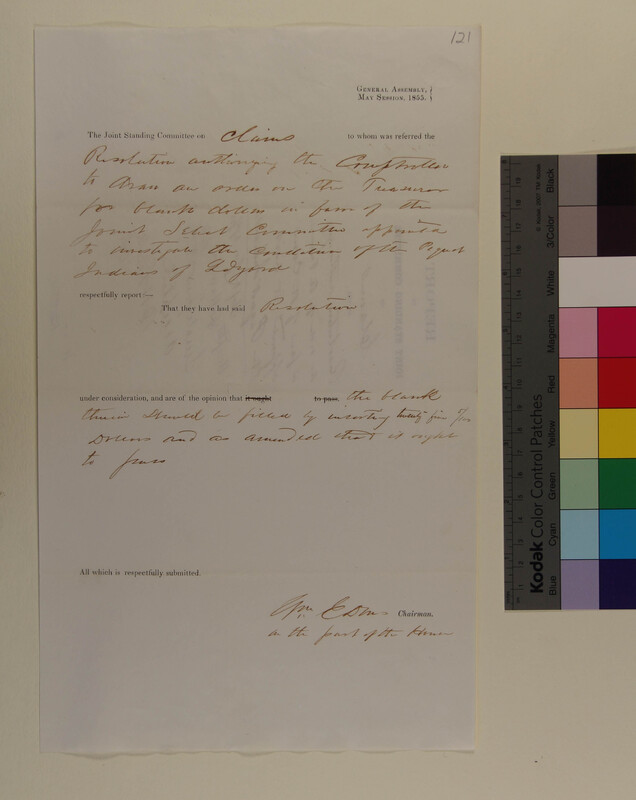 121
GENERAL ASSEMBLY,
MAY SESSION, 1855.
The Joint Standing Committee on Claims to whom was referred the
Resolution authorizing the Comptroller
to Draw an order on the Treasurer
for blank dollars in favor of the
Joint Select Committee appointed
to investigate the Condition of the Pequot
Indians of Ledyard
respectfully report:—
That they have had said Resolution
under consideration, and are of the opinion that it ought to pass. the blank
therein Should be filled by inserting twenty five
Dollars and as amended that it ought
to pass
All which is respectfully submitted.
Wm Chairman.
on the part of the House
Kodak Color Control Patches
© Kodak, 2007 TM: Kodak
Blue
Cyan
Green
Yellow
Red
Magenta
White
3/Color
Black